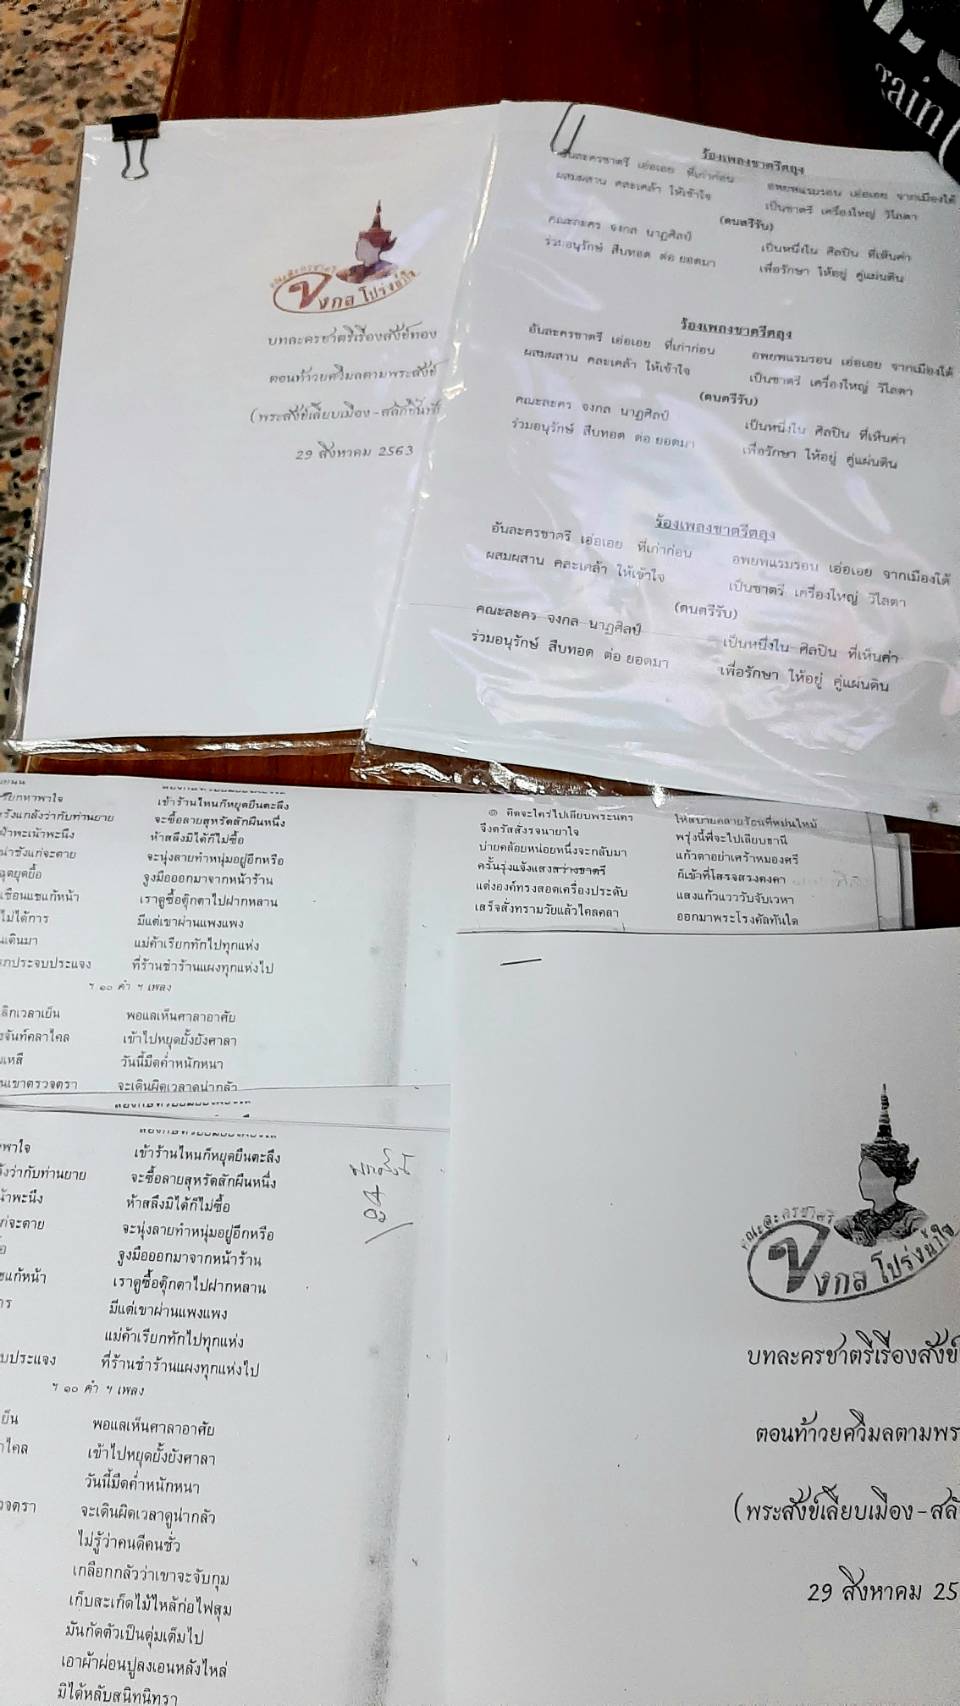 คณะละครชาตรี
จงกล โปร่งน้ำใจ
บทละครชาตรีเรื่องสังข์ทอง
ตอนท้าวยศวิมลตามพระสังข์
(พระสังข์เลียบเมือง-สลัก
29 สิงหาคม 2563
ร้องเพลงชาตรีตลุง
อันละครชาตรี เอ่อเอย ที่เก่าก่อน อพยพแรมรอน เอ่อเอย จากเมืองใต้
ผสมผสาน คละเคล้า ให้เข้าใจ เป็นชาตรี เครื่องใหญ่ วิไลตา
(ดนตรีรับ)
คณะละคร จงกล นาฏศิลป์ เป็นหนึ่งใน ศิลปิน ที่เห็นค่า
ร่วมอนุรักษ์ สืบทอด ต่อ ยอดมา เพื่อรักษา ให้อยู่ คู่แผ่นดิน
ร้องเพลงชาตรีตลุง
อันละครชาตรี เอ่อเอย ที่เก่าก่อน อพยพแรมรอน เอ่อเอย จากเมืองใต้
ผสมผสาน คละเคล้า ให้เข้าใจ เป็นชาตรี เครื่องใหญ่ วิไลตา
(ดนตรีรับ)
คณะละคร จงกล นาฏศิลป์ เป็นหนึ่งใน ศิลปิน ที่เห็นค่า
ร่วมอนุรักษ์ สืบทอด ต่อ ยอดมา เพื่อรักษา ให้อยู่ คู่แผ่นดิน
ร้องเพลงชาตรีตลุง
อันละครชาตรี เอ่อเอย ที่เก่าก่อน อพยพแรมรอน เอ่อเอย จากเมืองใต้
ผสมผสาน คละเคล้า ให้เข้าใจ เป็นชาตรี เครื่องใหญ่ วิไลตา
(ดนตรีรับ)
คณะละคร จงกล นาฏศิลป์ เป็นหนึ่งใน ศิลปิน ที่เห็นค่า
ร่วมอนุรักษ์ สืบทอด ต่อ ยอดมา เพื่อรักษา ให้อยู่ คู่แผ่นดิน
rain
ยกหาพาใจ เข้าร้านไหนก็หยุดยืนตะลึง
รังแกล้งว่ากับท่านยาย จะซื้อลายสุหรัดสักผืนหนึ่ง
พะเน้าพะนึง ห้าสลึงมิได้ก็ไม่ซื้อ
น่าชังแก่จะตาย จะนุ่งลายทำหนุ่มอยู่อีกหรือ
ฉุดยุดยื้อ จูงมือออกมาจากหน้าร้าน
เชือนแชแก้หน้า เราดูซื้อตุ๊กตาไปฝากหลาน
ไม่ได้การ มีแต่เขาผ่านแพงแพง
เดินมา แม่ค้าเรียกทักไปทุกแห่ง
ประจบประแจง ที่ร้านชำร้านแผงทุกแห่งไป
ฯ ๑๐ คำ ฯ เพลง
ลิกเวลาเย็น พอแลเห็นศาลาอาศัย
จันท์คลาไคล เข้าไปหยุดยั้งยังศาลา
มเหสี วันนี้มืดค่ำหนักหนา
นเขาตรวจตรา จะเดินผิดเวลาดูน่ากลัว
๏ คิดจะใคร่ไปเลียบพระนคร ให้สบายคลายร้อนที่หม่นไหม้
จึงตรัสสั่งรจนายาใจ พรุ่งนี้พี่จะไปเลียบธานี
บ่ายคล้อยหน่อยหนึ่งจะกลับมา แก้วตาอย่าเศร้าหมองศรี
ครั้นรุ่งแจ้งแสงสว่างธาตรี ก็เข้าที่โสรจสรงคงคา
แต่งองค์ทรงสอดเครื่องประดับ แสงแก้วแวววับจับเวหา
เสร็จสั่งทรามวัยแล้วไคลคลา ออกมาพระโรงคัลทันใด
พาใจ เข้าร้านไหนก็หยุดยืนตะลึง
ังว่ากับท่านยาย จะซื้อลายสุหรัดสักผืนหนึ่ง
น้าพะนึง ห้าสลึงมิได้ก็ไม่ซื้อ
ก่จะตาย จะนุ่งลายทำหนุ่มอยู่อีกหรือ
จูงมือออกมาจากหน้าร้าน
แชแก้หน้า เราดูซื้อตุ๊กตาไปฝากหลาน
การ มีแต่เขาผ่านแพงแพง
แม่ค้าเรียกทักไปทุกแห่ง
บประแจง ที่ร้านชำร้านแผงทุกแห่งไป
ฯ ๑๐ คำ ฯ เพลง
เย็น พอแลเห็นศาลาอาศัย
าไคล เข้าไปหยุดยั้งยังศาลา
วันนี้มืดค่ำหนักหนา
วจตรา จะเดินผิดเวลาดูน่ากลัว
ไม่รู้ว่าคนดีคนชั่ว
เกลือกกลัวว่าเขาจะจับกุม
เก็บสะเก็ดไม้ไหล้ก่อไฟสุม
มันกัดตัวเป็นตุ่มเต็มไป
เอาผ้าผ่อนปูลงเอนหลังไหล่
มิได้หลับสนิทนิทรา
คณะละครชาตรี
จงกล โปร่งน้ำใจ
บทละครชาตรีเรื่องสังข์
ตอนท้าวยศวิมลตามพร
(พระสังข์เลียบเมือง-สลั
29 สิงหาคม 25